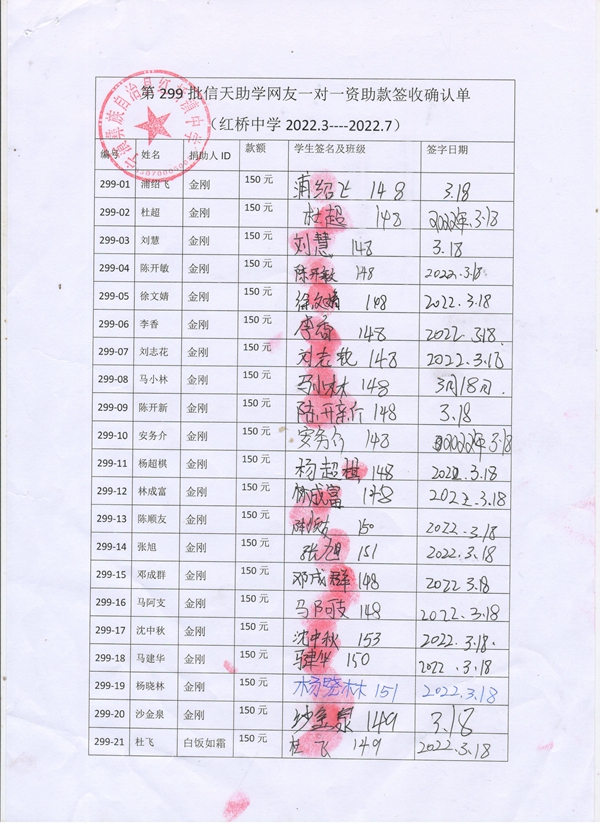 第 299 批信天助学网友一对一资助款签收确认单
（红桥中学 2022.3----2022.7）
编号 姓名 捐助人 ID 款额 学生签名及班级 签字日期
299-01 浦绍飞 金刚 150 元 浦绍飞 148 3.18
299-02 杜超 金刚 150 元 杜超 148 2022年.3.18
299-03 刘慧 金刚 150 元 刘慧 148 3.18
299-04 陈开敏 金刚 150 元 陈开敏 148 2022.3.18
299-05 徐文婧 金刚 150 元 徐文婧 148 2022.3.18
299-06 李香 金刚 150 元 李香 148 2022.3.18.
299-07 刘志花 金刚 150 元 刘志花 148 2022.3.18
299-08 马小林 金刚 150 元 马小林 148 3月18日.
299-09 陈开新 金刚 150 元 陈开新 148 3.18
299-10 安务介 金刚 150 元 安务介 148 2022年.3.18
299-11 杨超棋 金刚 150 元 杨超棋 148 2022.3.18
299-12 林成富 金刚 150 元 林成富 148 2022.3.18
299-13 陈顺友 金刚 150 元 陈顺友 150 2022.3.18
299-14 张旭 金刚 150 元 张旭 151 2022.3.18
299-15 邓成群 金刚 150 元 邓成群 148 2022.3.18
299-16 马阿支 金刚 150 元 马阿支 148 2022.3.18
299-17 沈中秋 金刚 150 元 沈中秋 153 2022.3.18.
299-18 马建华 金刚 150 元 马建华 150 2022.3.18
299-19 杨晓林 金刚 150 元 杨晓林 151 2022.3.18
299-20 沙金泉 金刚 150 元 沙金泉 149 3.18
299-21 杜飞 白饭如霜 150 元 杜飞 149 2022.3.18